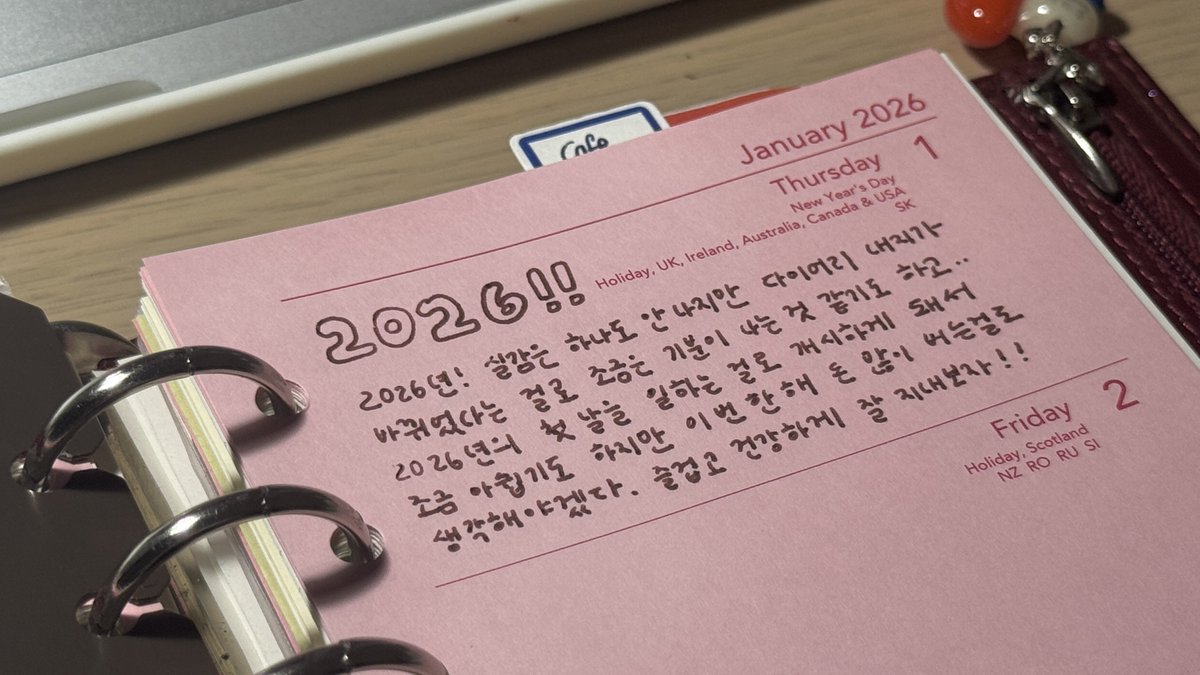 Cafe
January 2026
Thursday 1
New Year's Day
Holiday, UK, Ireland, Australia, Canada & USA
SK
2026!!
2026년! 실감은 하나도 안 나지만 다이어리 내지가
바뀌었다는 걸로 조금은 기분이 나는 것 같기도 하고..
2026년의 첫 날을 일하는 걸로 개시하게 돼서
조금 아쉽기도 하지만 이번 한 해 돈 많이 버는걸로
생각해야겠다. 즐겁고 건강하게 잘 지내보자!!
Friday 2
Holiday, Scotland
NZ RO RU SI